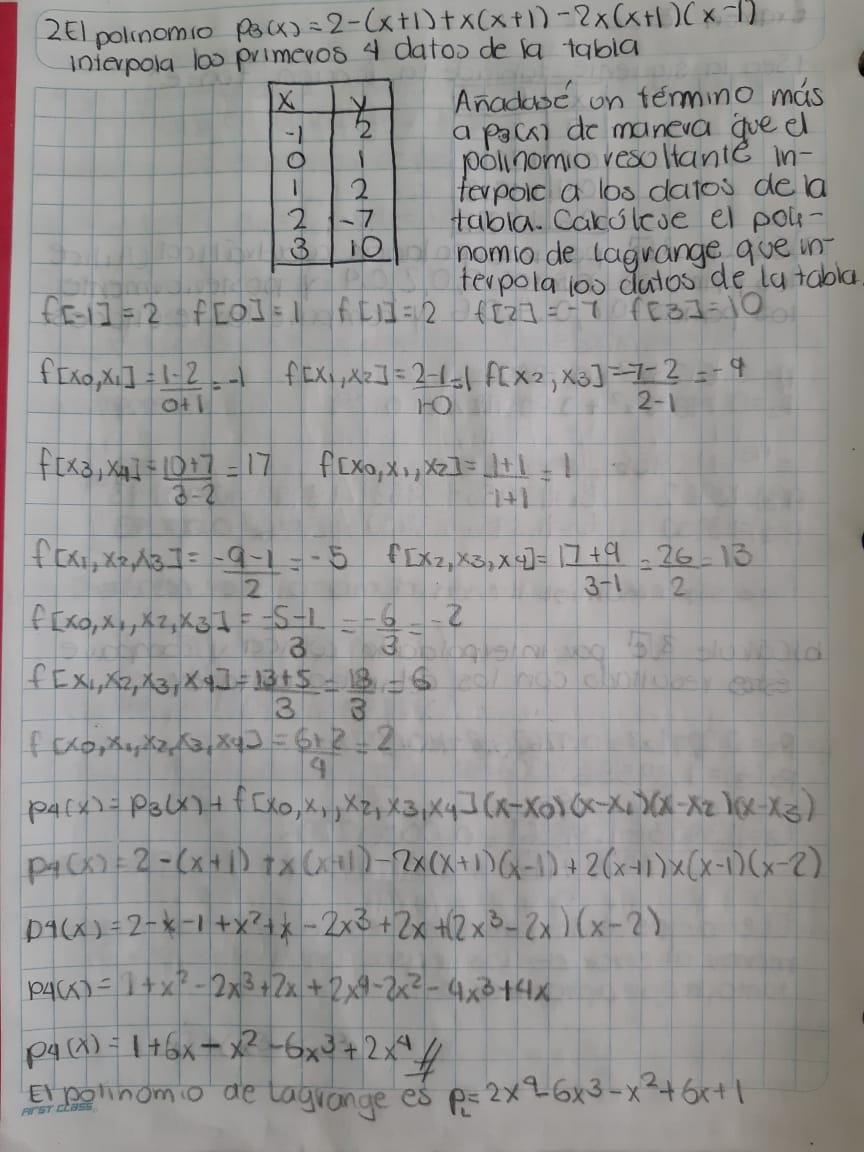 2 El polinomio p3(x)=2-(x+1)+x(x+1)-2x(x+1)(x-1)
interpola los primeros 4 datos de la tabla
x y
-1 2
0 1
1 2
2 -7
3 10
Añadasé un término más
a p3(x) de manera que el
polinomio resultante in-
terpole a los datos de la
tabla. Calcúlese el poli-
nomio de Lagrange que in-
terpola los datos de la tabla.
f[-1]=2 f[0]=1 f[1]=2 f[2]=-7 f[3]=10
f[x0,x1]=(1-2)/(0+1)=-1 f[x1,x2]=(2-1)/(1-0)=1 f[x2,x3]=(-7-2)/(2-1)=-9
f[x3,x4]=(10+7)/(3-2)=17 f[x0,x1,x2]=(1+1)/(1+1)=1
f[x1,x2,x3]=(-9-1)/2=-5 f[x2,x3,x4]=(17+9)/(3-1)=26/2=13
f[x0,x1,x2,x3]=(-5-1)/3=-6/3=-2
f[x1,x2,x3,x4]=(13+5)/3=18/3=6
f[x0,x1,x2,x3,x4]=(6+2)/4=2
p4(x)=p3(x)+f[x0,x1,x2,x3,x4](x-x0)(x-x1)(x-x2)(x-x3)
p4(x)=2-(x+1)+x(x+1)-2x(x+1)(x-1)+2(x+1)x(x-1)(x-2)
p4(x)=2-x-1+x²+x-2x³+2x+(2x³-2x)(x-2)
p4(x)=1+x²-2x³+2x+2x⁴-2x²-4x³+4x
p4(x)=1+6x-x²-6x³+2x⁴//
El polinomio de Lagrange es PL=2x⁴-6x³-x²+6x+1
FIRST CLASS